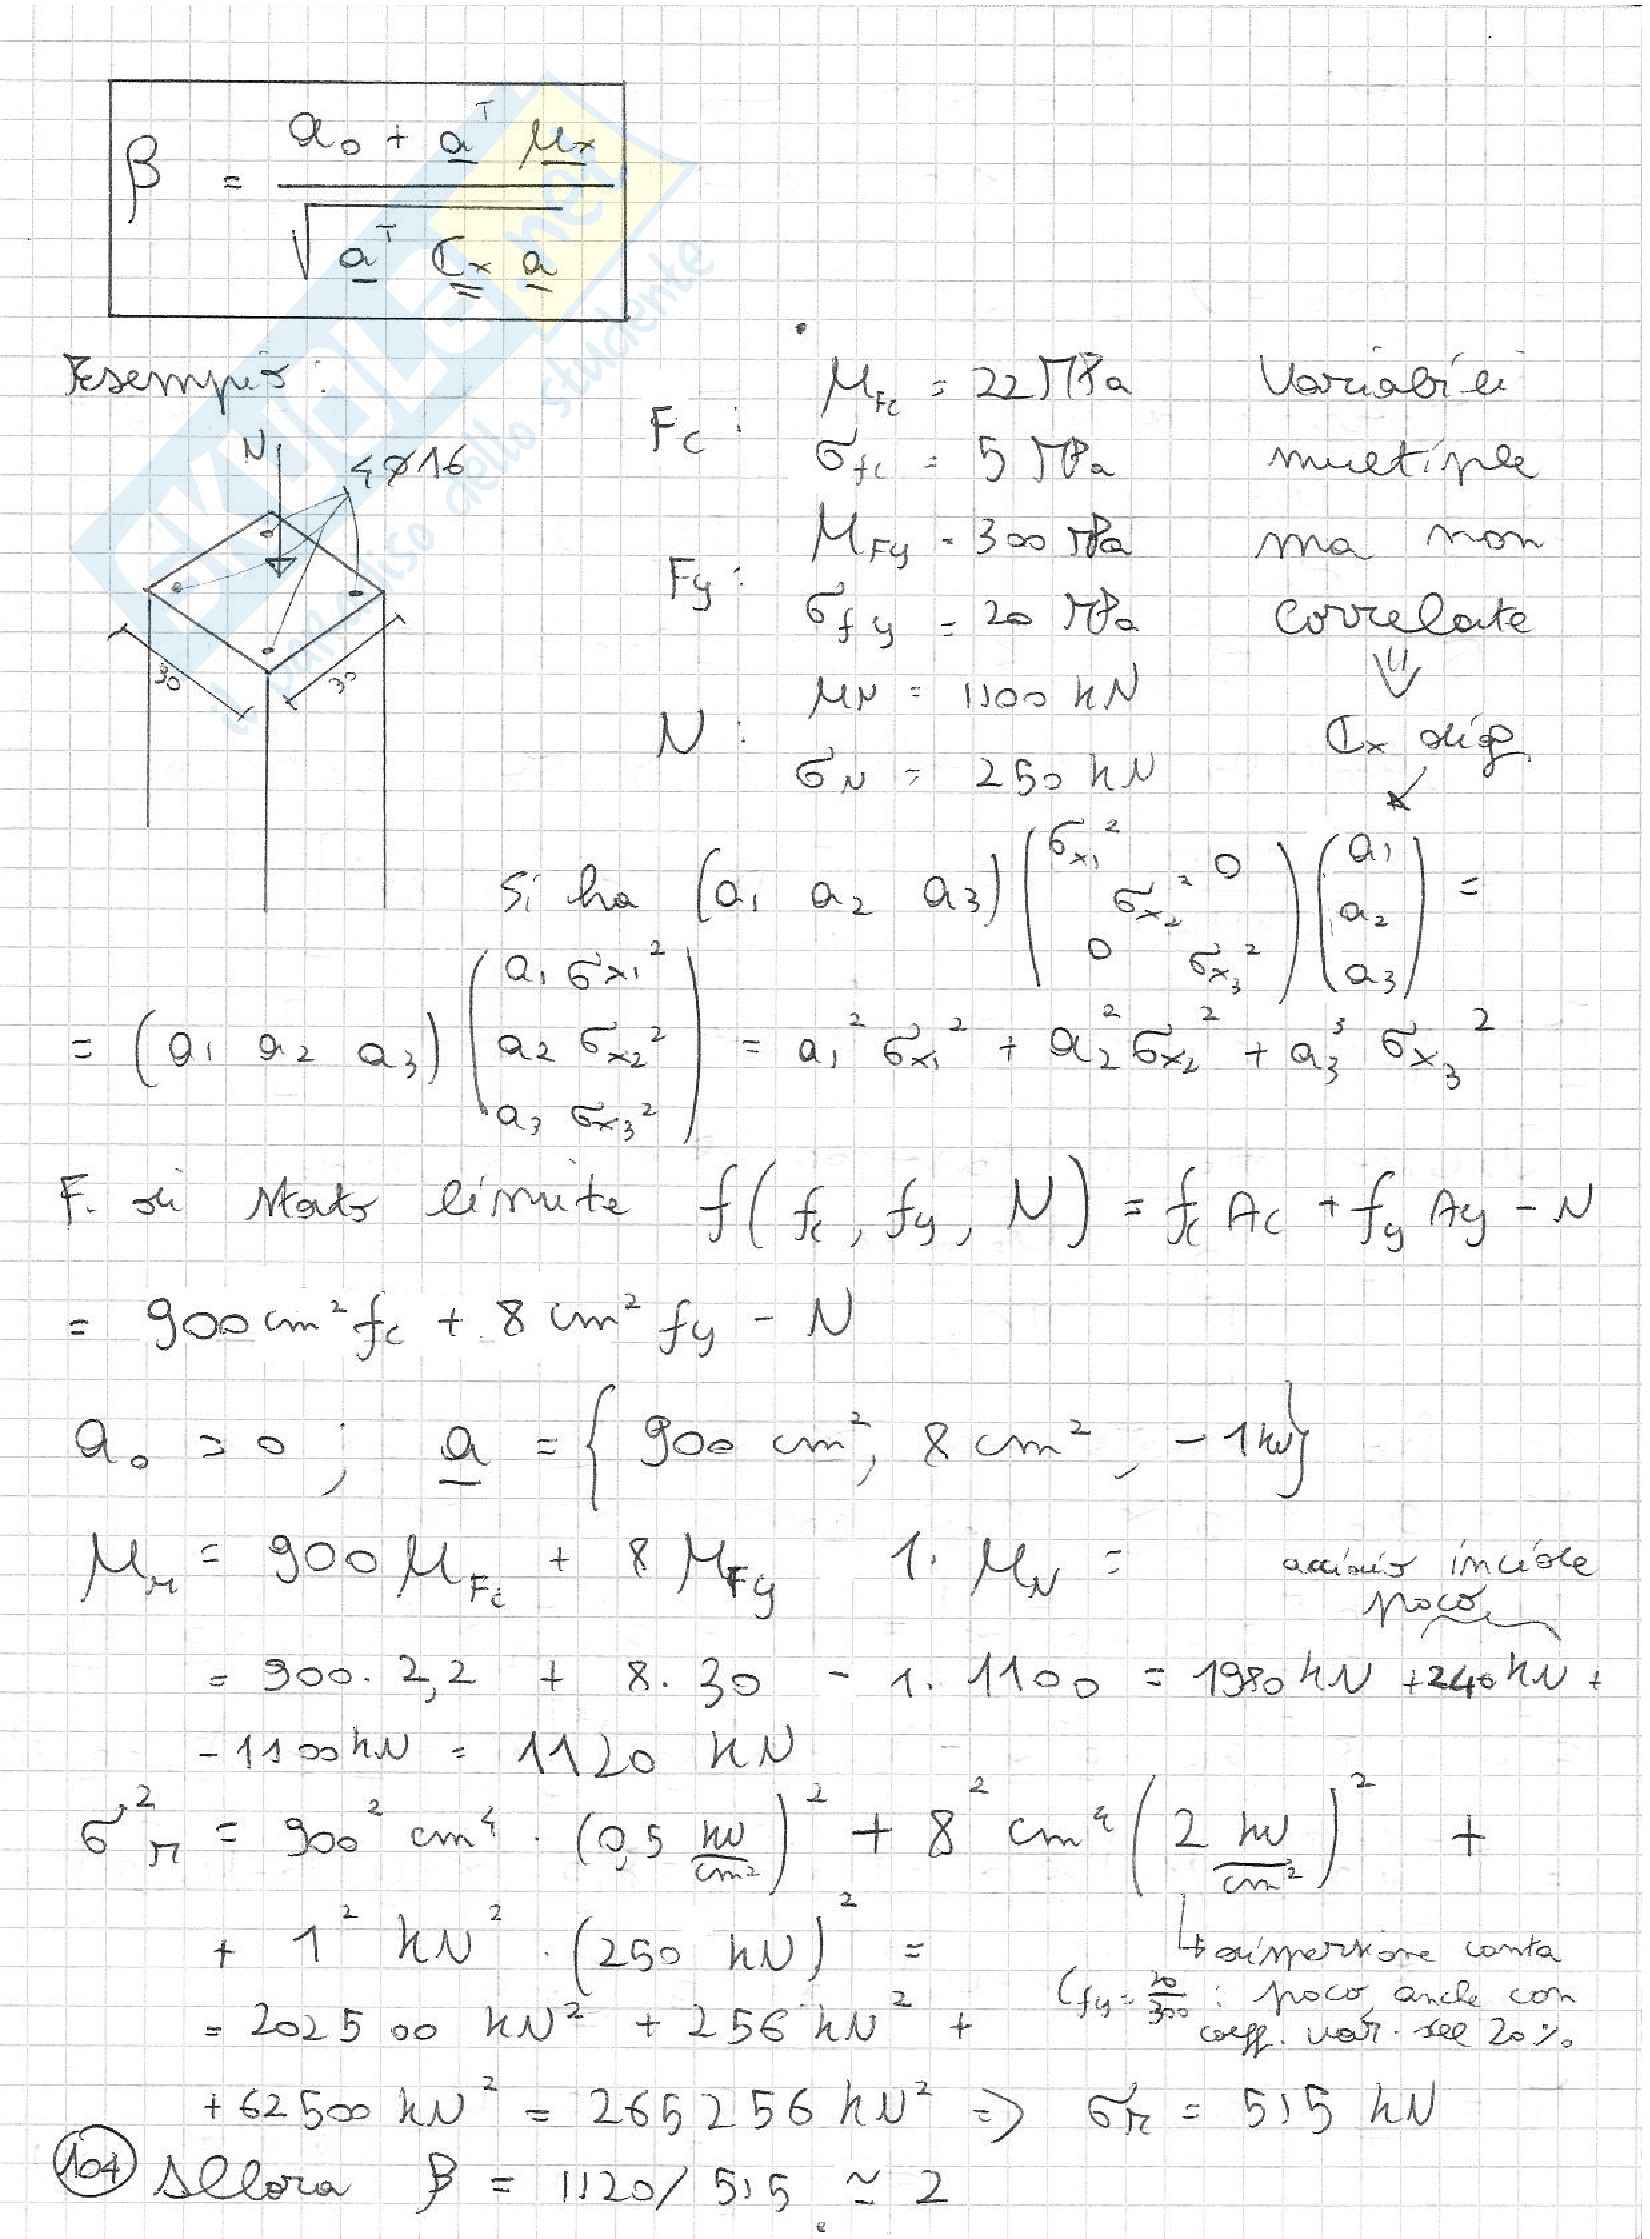 β = (a₀ + aᵀ μₓ) / √(aᵀ Cₓ a)
Esempio:
N
4Ø16
30
30
Fc: μFc = 22 MPa
σfc = 5 MPa
Fy: μFy = 300 MPa
σfy = 20 MPa
N: μN = 1100 kN
σN = 250 kN
Variabili
multiple
ma non
correlate
⇓
Cx diag.
Si ha (a₁ a₂ a₃) (σx₁² σx₂² 0 0 σx₃²) (a₁ a₂ a₃) =
= (a₁ a₂ a₃) (a₁ σx₁² a₂ σx₂² a₃ σx₃²) = a₁² σx₁² + a₂² σx₂² + a₃³ σx₃²
F. di stato limite f(fc, fy, N) = fc Ac + fy Ay - N
= 900 cm² fc + 8 cm² fy - N
a₀ = 0 ; a = {900 cm², 8 cm², -1 kN}
μM = 900 μFc + 8 μFy 1. μN =
acciaio incide
poco
= 900. 2,2 + 8. 30 - 1. 1100 = 1980 kN + 240 kN +
- 1100 kN = 1120 kN
σM² = 900² cm⁴ · (0,5 kN/cm²)² + 8² cm⁴ (2 kN/cm²)² +
+ 1² kN² · (250 kN)² =
↳ dispersione conta
Cfy = 20/300 : poco, anche con
coeff. var. del 20%
= 202500 kN² + 256 kN² +
+ 62500 kN² = 265256 kN² => σM = 515 kN
104 Allora β = 1120/515 ≃ 2